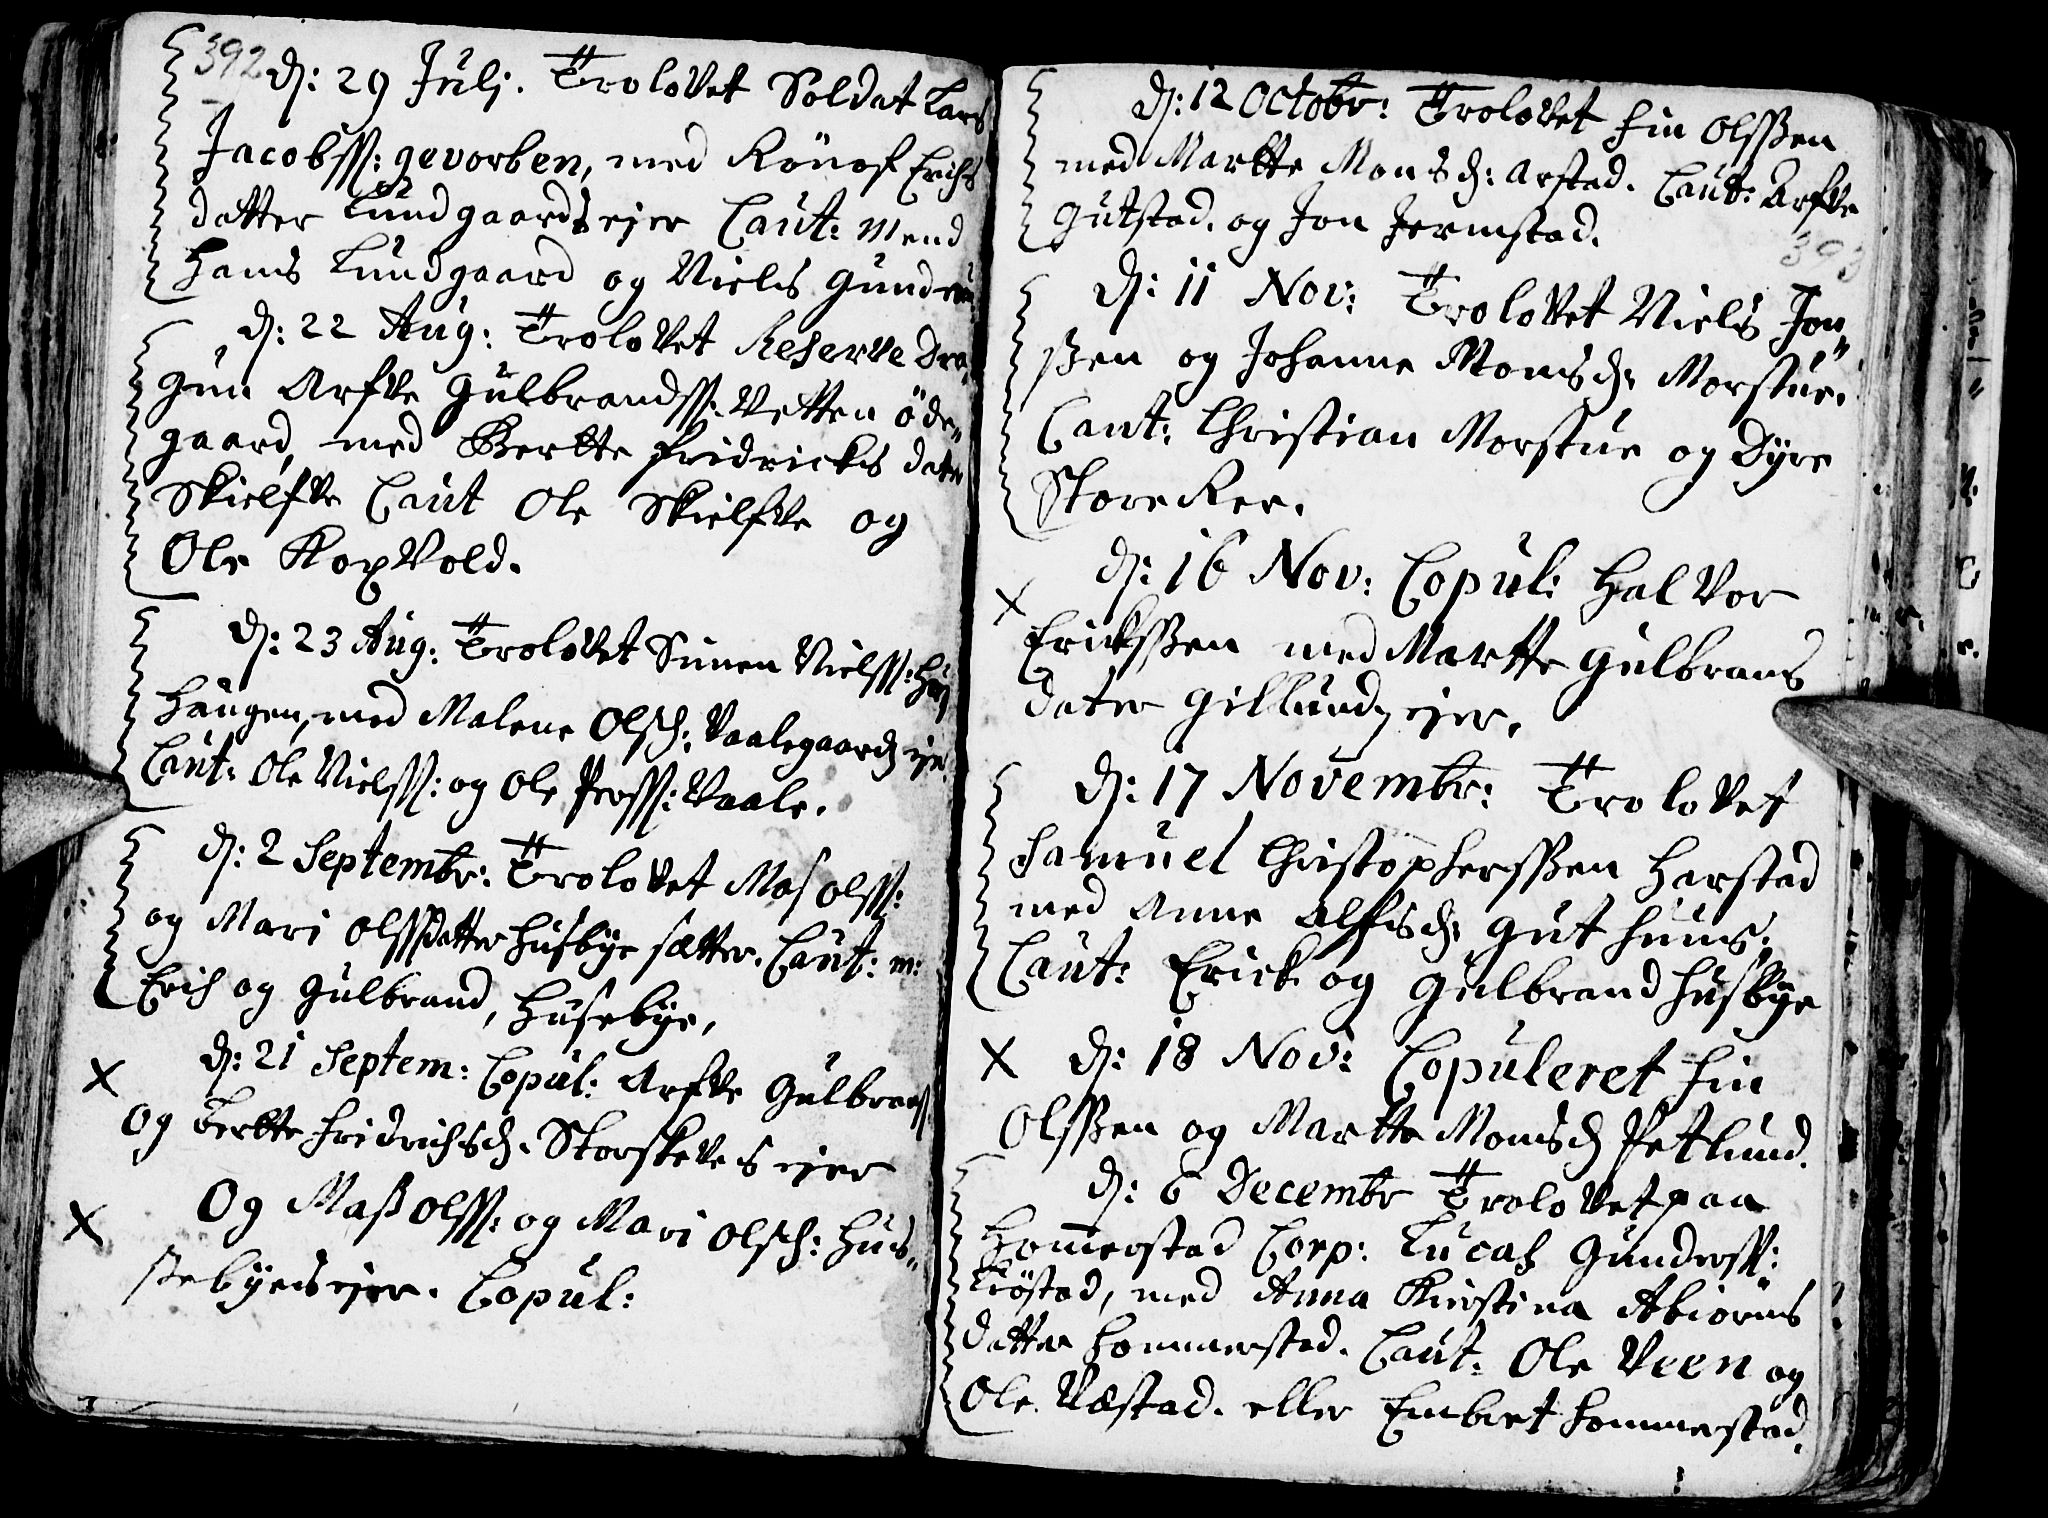 392
d: 29 Julj. Trolovet Soldat Lars
Jacobss: gevorben, med Rönof Erichs
datter Lundgaards ejer Caut: Mend
Hans Lundgaard og Niels
d: 22 Aug: Trolovet Reserve Dra„
gun Arfve Gulbrandss: Vetten öde„
gaard, med Berthe fridricks dater
Skielfve Caut Ole Skielfve og
Ole Kopvold.
d: 23 Aug: Trolovet Simen Nielss:
Haugen, med Malene Olsd: Vaalegaards ejer.
Caut: Ole Nielss: og Ole Perss: Vaale.
d: 2 Septembr: Trolovet Mas Olss:
og Mari Olssdatter Husbye sætter. Caut: m:
Erich og Gulbrand, Husebye,
d: 21 Septem: Copul: Arfve Gulbrans
X
og Berthe fridrichsd. ejer
Og Mass Olss: og Mari Olsd: Hus„
X
sebyes ejer. Copul:
d: 12 Octobr: Trolovet fin Olssen
med Marthe Monsd: Arstad. Caut: Arfve
Gutstad. og Jon Jermstad.
393
d: 11 Nov: Trolovet Niels Jon„
ssen og Johanne Monsd: Morstue.
Caut: Christian Morstue og Dyre
Store Ree.
d: 16 Nov: Copul: Halvor
X
Erickssen med Marthe Gulbrans
dater Gillunds ejer.
d: 17 Novembr: Trolovet
Samuel Christopherssen Harstad
med Anne Alfsd: Gut huus.
Caut: Erick og Gulbrand Husbye
X d: 18 Nov: Copuleret fin
Olssen og Marthe Monsd Petlund.
d: 6 Decembr Trolovet paa
Homerstad Corp: Lucas Gunderss:
Kiöstad, med Anna Kirstina Abiörns
datter Hommerstad. Caut: Ole Veen og
Ole Væstad. eller Embret Hommerstad.